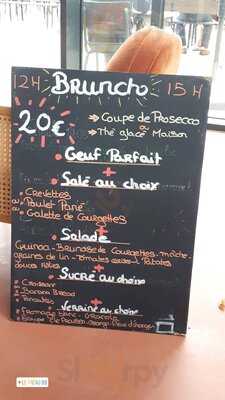 12H BRUNCH 15H
20€
Coupe de Prosecco
ou
Thé glacé Maison
Oeuf Parfait
+
Salé au choix
Crevettes
ou Poulet Pané
Galette de Courgettes
+
Salade
Quinoa - Brunoise de Courgettes - maïche -
graines de lin - Tomates
douces rôties
+
Sucré au choix
Croissant
Banana Bread
Pancakes
+
Verrine au choix
Fromage blanc - Granola